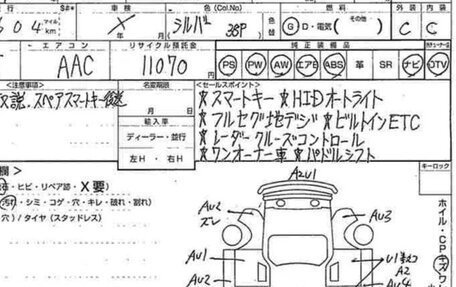 車検
色名 (Col.No)
燃料
外装 内装
604 マイル km
X 年 月
シルバー 38P
Ⓖ D・電気 (その他)
C C
エアコン
リサイクル預託金
純正装備品
AAC
11070
PS PW AW エアB ABS 革 SR ナビ DTV
注意事項
名変期限
セールスポイント
取説、スペアスマートキー後送
月 日
輸入車
ディーラー・並行
左H ・ 右H
★スマートキー ★HIDオートライト
★フルセグ地デジ ★ビルトインETC
★レーダークルーズコントロール
★ワンオーナー車 ★パドルシフト
キーロック
・ヒビ・リペア認・X要)
汚れ・シミ・コゲ・穴・キレ・破れ・割れ)
穴) / タイヤ (スタッドレス)
A2U1
AU2
ズレ
AU3
AU1
AU2
A2
AU4
ホイル・CPキズ